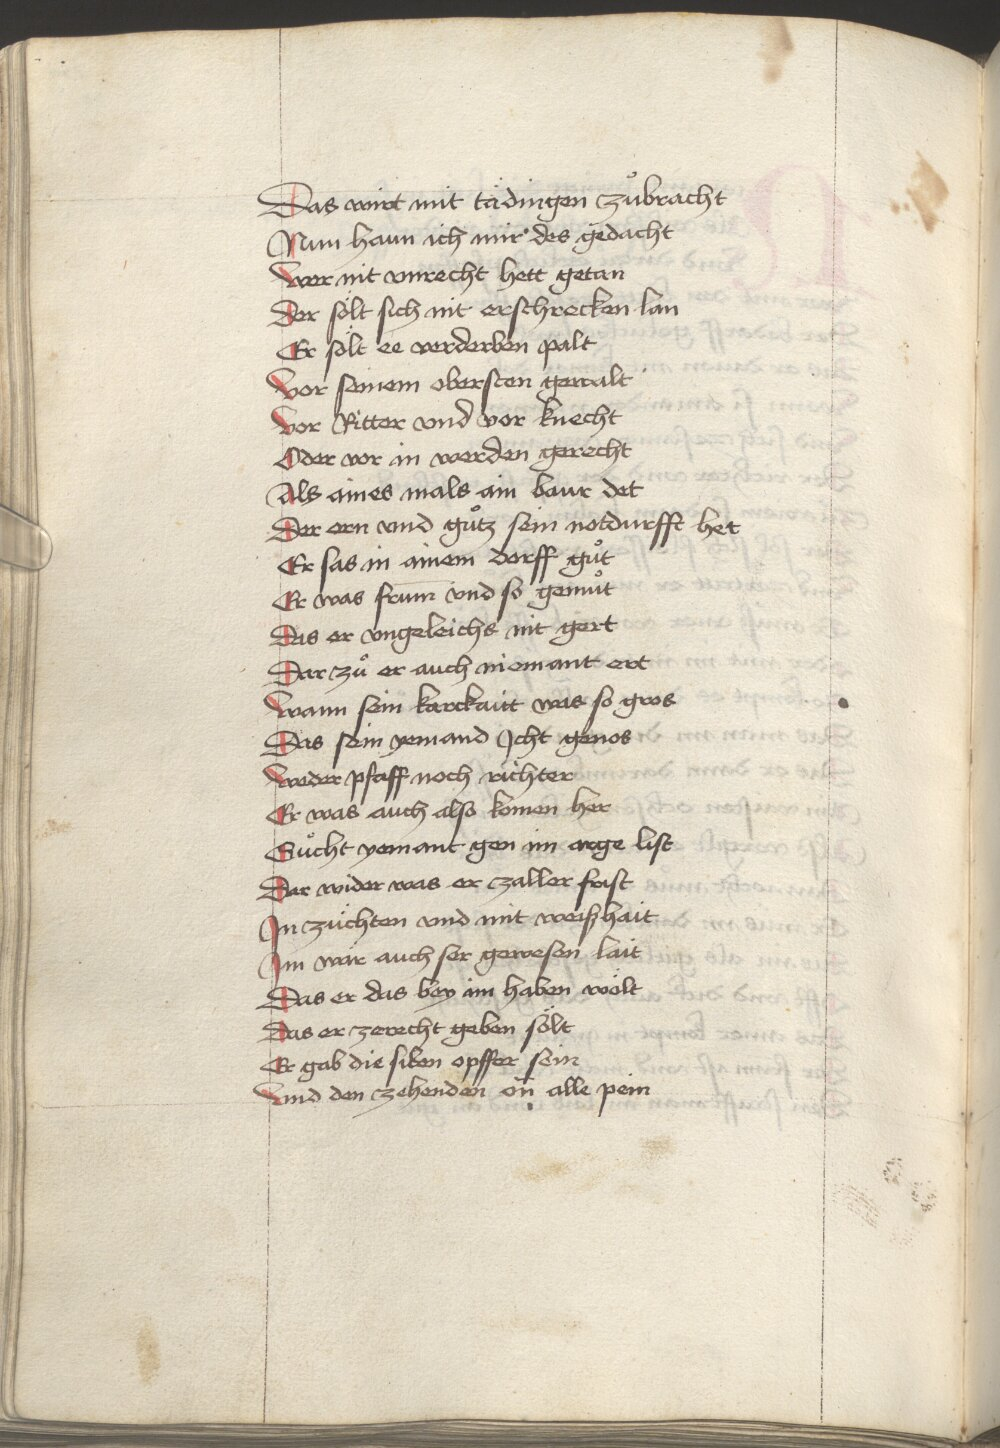 Das wirt mit tädingen zuͦbracht
Nun haun ich mir des gedacht
Wer nit vnrecht hett getan
Der sölt sich nit erschrecken lan
Er sölt ee verderben palt
Vor seinem obersten gewalt
Vor Ritter vnd vor knecht
Oder vor in werden gerecht
Als aines mals ain baur det
Der ern vnd guͦtz sein notdurfft het
Er sas in ainem dorff guͦt
Er was frum̄ vnd so gemuͦt
Das er vngeleichs nit gert
Dar zuͦ er auch niemant ert
Wann sein karckaitt was so gros
Das sein yemand Icht genos
Weder pfaff noch richter
Er was auch also komen her
Suͦcht yemant gen im arge list
Dar wider was er zaller frist
In züchten vnd mit weißhait
Im wär auch ser gewesen lait
Das er das bey im haben wölt
Das er zerecht geben sölt
Er gab die siben opffer sein
Vnd den zehenden on̄ alle pein